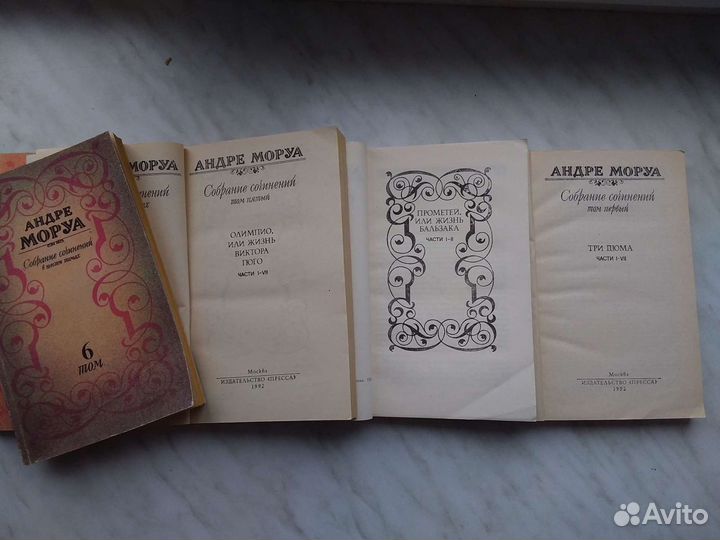 АНДРЕ
МОРУА
Собрание сочинений
в шести томах
6
том
МОРУА
АНДРЕ МОРУА
Собрание сочинений
том пятый
ОЛИМПИО,
ИЛИ ЖИЗНЬ
ВИКТОРА
ГЮГО
ЧАСТИ I-VII
Москва
ИЗДАТЕЛЬСТВО «ПРЕССА»
1992
ПРОМЕТЕЙ,
ИЛИ ЖИЗНЬ
БАЛЬЗАКА
ЧАСТИ I-II
АНДРЕ МОРУА
Собрание сочинений
том первый
ТРИ ДЮМА
ЧАСТИ I-VII
Москва
ИЗДАТЕЛЬСТВО «ПРЕССА»
1992
Avito